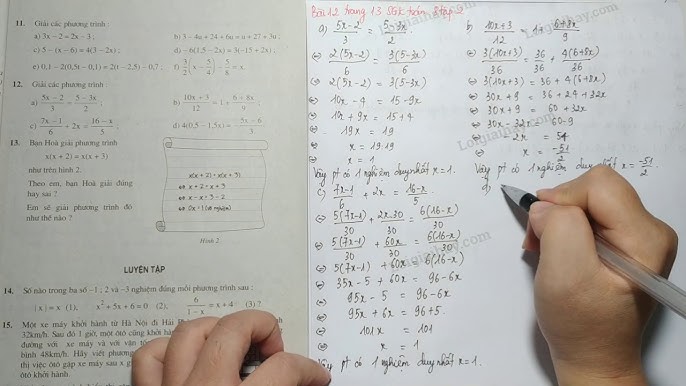 11. Giải các phương trình :
a) 3x − 2 = 2x − 3 ;
b) 3 − 4u + 24 + 6u = u + 27 + 3u ;
c) 5 − (x − 6) = 4(3 − 2x) ;
d) −6(1,5 − 2x) = 3(−15 + 2x) ;
e) 0,1 − 2(0,5t − 0,1) = 2(t − 2,5) − 0,7 ;
f) 3/2 (x − 5/4) − 5/8 = x.
12. Giải các phương trình :
a) (5x − 2)/3 = (5 − 3x)/2 ;
b) (10x + 3)/12 = 1 + (6 + 8x)/9 ;
c) (7x − 1)/6 + 2x = (16 − x)/5 ;
d) 4(0,5 − 1,5x) = −(5x − 6)/3
13. Bạn Hoà giải phương trình
x(x + 2) = x(x + 3)
như trên hình 2.
Theo em, bạn Hoà giải đúng
hay sai ?
Em sẽ giải phương trình đó
như thế nào ?
x(x + 2) = x(x + 3)
⇔ x + 2 = x + 3
⇔ x − x = 3 − 2
⇔ 0x = 1 (vô nghiệm)
Hình 2
LUYỆN TẬP
14. Số nào trong ba số −1 ; 2 và −3 nghiệm đúng mỗi phương trình sau :
|x| = x (1), x² + 5x + 6 = 0 (2), 6/(1 − x) = x + 4 (3) ?
15. Một xe máy khởi hành từ Hà Nội đi Hải
32km/h. Sau đó 1 giờ, một ôtô cũng khởi hành
đường với xe máy và với vận tốc
bình 48km/h. Hãy viết phương
thị việc ôtô gặp xe máy sau x
ôtô khởi hành.
Bài 12 trang 13 Sgk toán 8 tập 2
a) (5x − 2)/3 = (5 − 3x)/2
⇔ 2(5x − 2)/6 = 3(5 − 3x)/6
⇔ 2(5x − 2) = 3(5 − 3x)
⇔ 10x − 4 = 15 − 9x
⇔ 10x + 9x = 15 + 4
⇔ 19x = 19
⇔ x = 19:19
⇔ x = 1
Vậy pt có 1 nghiệm duy nhất x = 1.
c) (7x − 1)/6 + 2x = (16 − x)/5
⇔ 5(7x − 1)/30 + 2x.30/30 = 6(16 − x)/30
⇔ 5(7x − 1)/30 + 60x/30 = 6(16 − x)/30
⇔ 5(7x − 1) + 60x = 6(16 − x)
⇔ 35x − 5 + 60x = 96 − 6x
⇔ 95x − 5 = 96 − 6x
⇔ 95x + 6x = 96 + 5
⇔ 101x = 101
⇔ x = 1
Vậy pt có 1 nghiệm duy nhất x = 1.
b) (10x + 3)/12 = 1 + (6 + 8x)/9
⇔ 3(10x + 3)/36 = 36/36 + 4(6 + 8x)/36
⇔ 3(10x + 3) = 36 + 4(6 + 8x)
⇔ 30x + 9 = 36 + 24 + 32x
⇔ 30x + 9 = 60 + 32x
⇔ 30x − 32x = 60 − 9
⇔ −2x = 51
⇔ x = −51/2
Vậy pt có 1 nghiệm duy nhất x = −51/2
d)
Loigiaihay.com
Loigiaihay.com